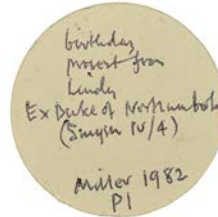 birthday
present from
Linda
Ex Duke of Northumberland
(Smyth IV/4)
Miller 1982
P1